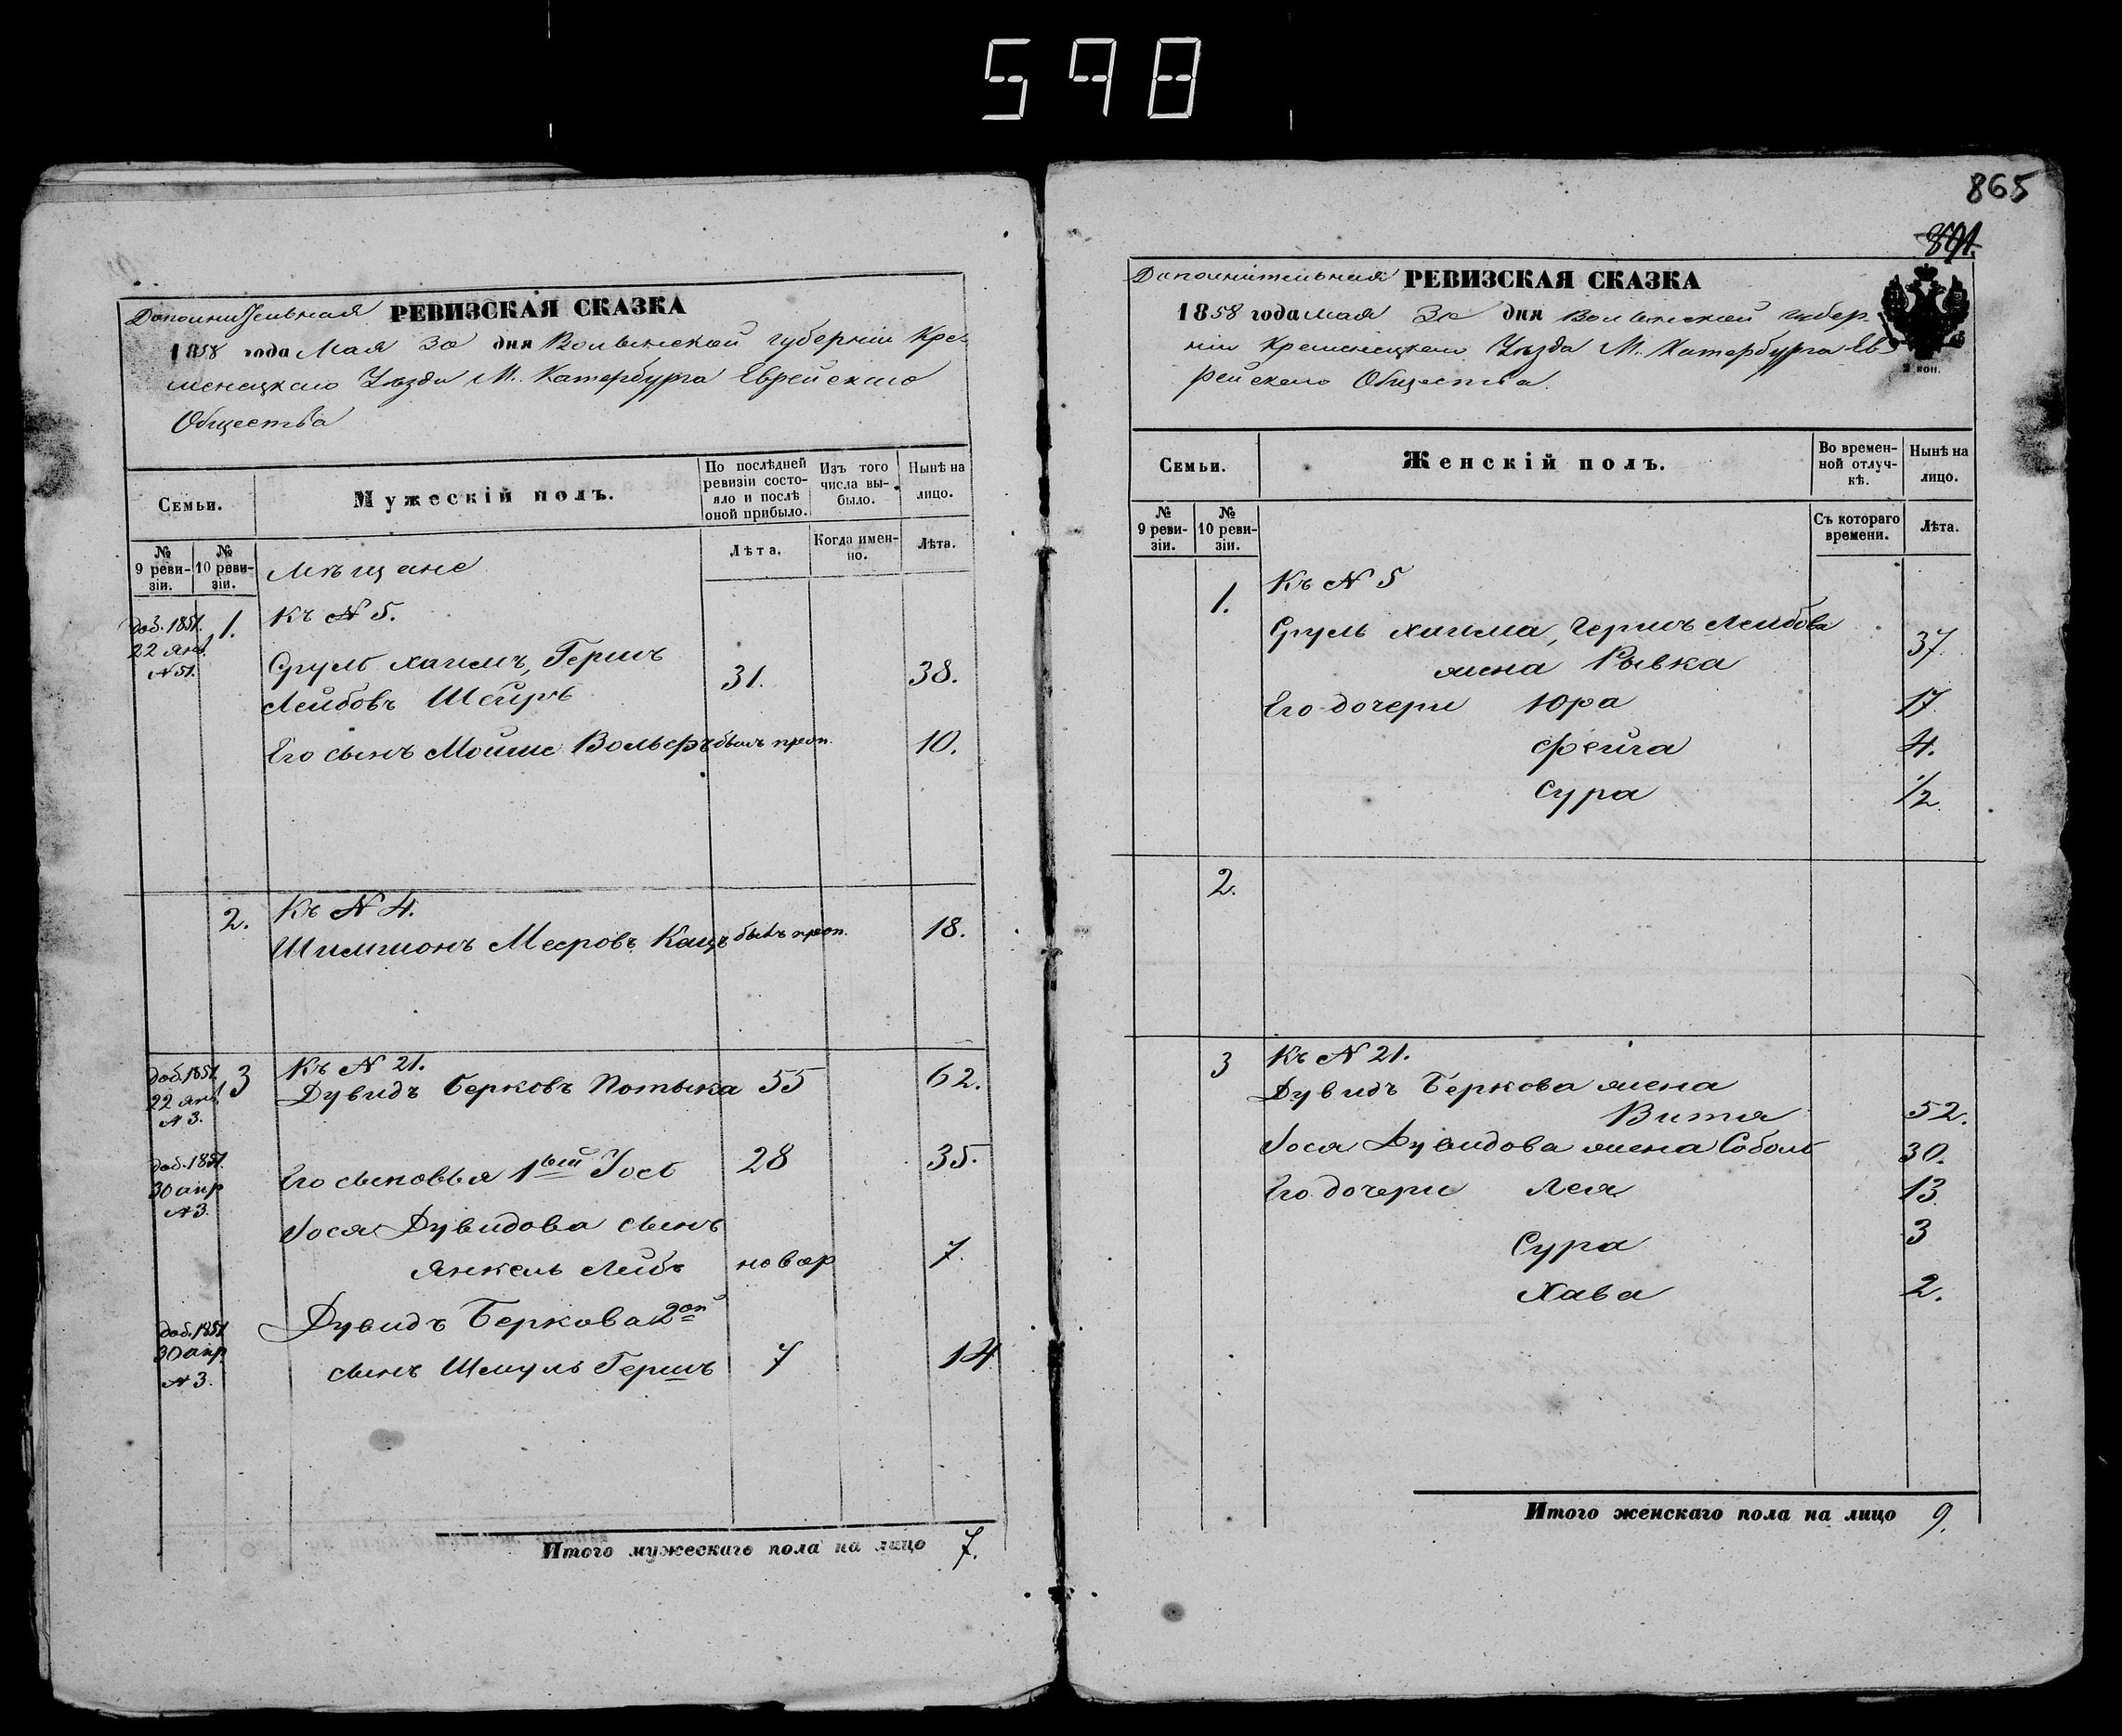 598
Дополнительная РЕВИЗСКАЯ СКАЗКА
1858 года Мая 30 дня Волынской губернiи Кре-
менецкаго Уѣзда М. Катербурга Еврейскаго
Общества
Семьи.
Мужескiй полъ.
По послѣдней
ревизiи состо-
яло и послѣ
оной прибыло.
Изъ того
числа вы-
было.
Нынѣ на
лицо.
№
9 реви-
зiи.
№
10 реви-
зiи.
Лѣта.
Когда имен-
но.
Лѣта.
Мѣщане
доб. 1851.
22 янв.
N 51.
1.
Къ N 5.
Сруль Хаимъ, Гершъ
Лейбовъ Шейръ
31.
38.
Его сынъ Мойше Вольфъ былъ проп.
10.
2.
Къ N 4.
Шимшонъ Мееровъ Кацъ былъ проп.
18.
доб. 1851.
22 янв.
N 3.
3
Къ N 21.
Дувидъ Берковъ Потыка 55
62.
доб. 1851.
30 апр
N 3.
Его сыновья 1ый Iось
28
35.
Iося Дувидова сынъ
Янкель Лейбъ новор
7.
доб. 1851
30 апр
N 3.
Дувидъ Беркова 2ой
сынъ Шмуль Гершъ
7
14
Итого мужескаго пола на лицо 7.
865
891.
Дополнительная РЕВИЗСКАЯ СКАЗКА
1858 года мая 30 дня Волынской губер-
нiи Кременецкаго Уѣзда М. Катербурга Ев
рейскаго Общества.
2 коп.
Семьи.
Женскiй полъ.
Во времен-
ной отлуч-
кѣ.
Нынѣ на
лицо.
№
9 реви-
зiи.
№
10 реви-
зiи.
Съ котораго
времени.
Лѣта.
1.
Къ N 5
Сруль Хаима, Гершъ Лейбова
жена Рывка
37.
Его дочери Юра
17.
Фейга
4.
Сура
1/2
2.
3
Къ N 21.
Дувидъ Беркова жена
Витя
52.
Iося Дувидова жена Соболь
30.
Его дочери Лея
13
Сура
3
Хава
2.
Итого женскаго пола на лицо 9.